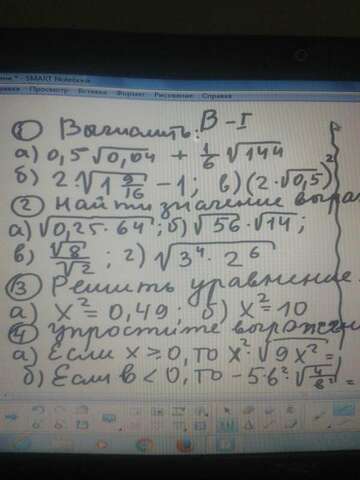 SMART Notebook
Просмотр Вставка Формат Рисование Справка
В-I
① Вычислить:
а) 0,5√0,04 + 1/6 √144
б) 2·√(1 9/16) -1; в) (2·√0,5)²
② Найти значение выраж
а) √(0,25·64); б) √56·√14;
в) √8/√2; г) √(3⁴·2⁶)
③ Решить уравнение.
а) x²=0,49; б) x²=10
④ Упростите выражен
а) Если x≥0, то x²·√(9x²)=
б) Если в<0, то -5·в²·√(4/в²)=